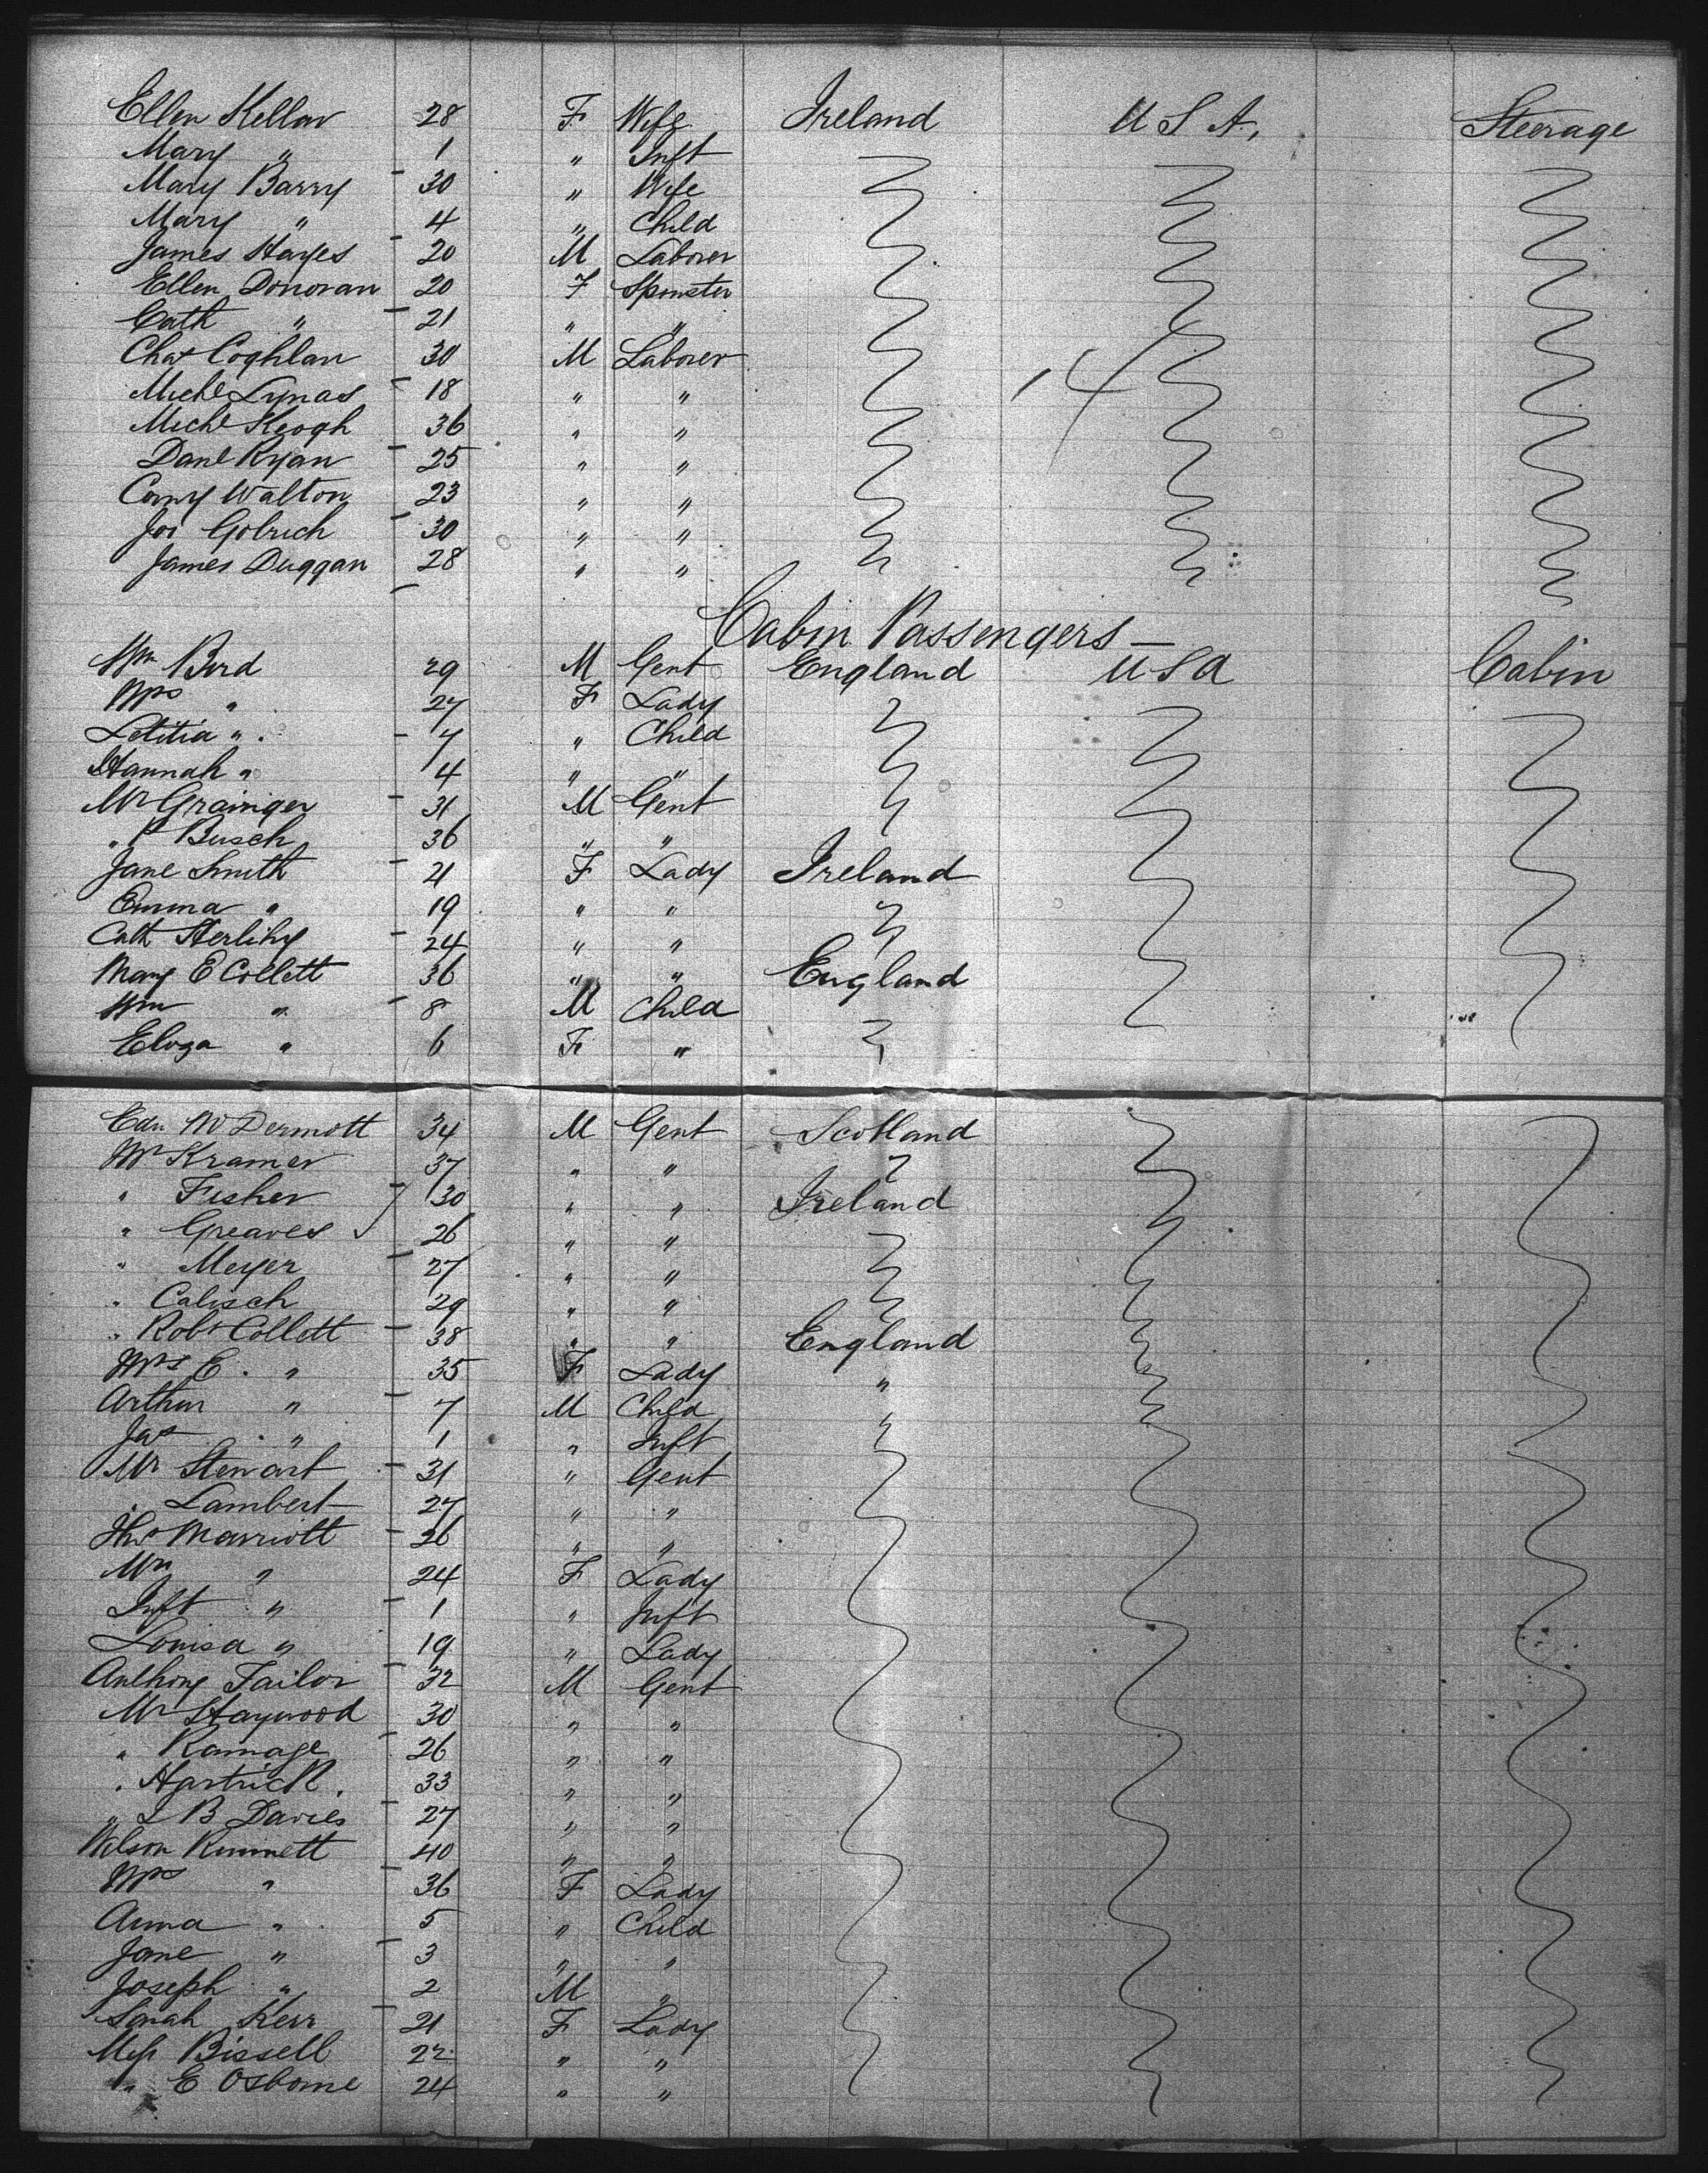 Ellen Kellar 28 F Wife Ireland U S A. Steerage
Mary " 1 " Inft
Mary Barry 30 " Wife
Mary " 4 " Child
James Hayes 20 M Laborer
Ellen Donovan 20 F Spinster
Cath " 21 " "
Chas Coghlan 30 M Laborer
Michl Lynas 18 " "
Michl Keogh 36 " "
Danl Ryan 25 " "
Corny Walton 23 " "
Jos Golrich 30 " "
James Duggan 28 " "
14
Cabin Passengers —
Wm Bird 29 M Gent England U S A Cabin
Mrs " 27 F Lady
Letitia " 7 " Child
Hannah " 4 " "
Mr Grainger 31 M Gent
" P Busch 36 " "
Jane Smith 21 F Lady Ireland
Emma " 19 " "
Cath Herlihy 24 " "
Mary E Collett 36 " " England
Wm " 8 M Child
Eliza " 6 F "
Edw McDermott 34 M Gent Scotland
Mr Kramer 37 " "
" Fisher 30 " " Ireland
" Greaves 26 " "
" Meyer 27 " "
" Calisch 29 " "
" Robt Collett 38 " " England
Mrs E. " 35 F Lady "
Arthur " 7 M Child "
Jas " 1 " Inft
Mr Stewart 31 " Gent
" Lambert 27 " "
Thos Marriott 26 " "
Mrs " 24 F Lady
Inft " 1 " Inft
Louisa " 19 " Lady
Anthony Tailor 32 M Gent
Mr Haywood 30 " "
" Ramage 26 " "
" Hartrick 33 " "
" L B Davies 27 " "
Wilson Kimmett 40 " "
Mrs " 36 F Lady
Anna " 5 " Child
Jane " 3 " "
Joseph " 2 M "
Sarah Kerr 21 F Lady
Miss Bissell 22 " "
" E Osborne 24 " "